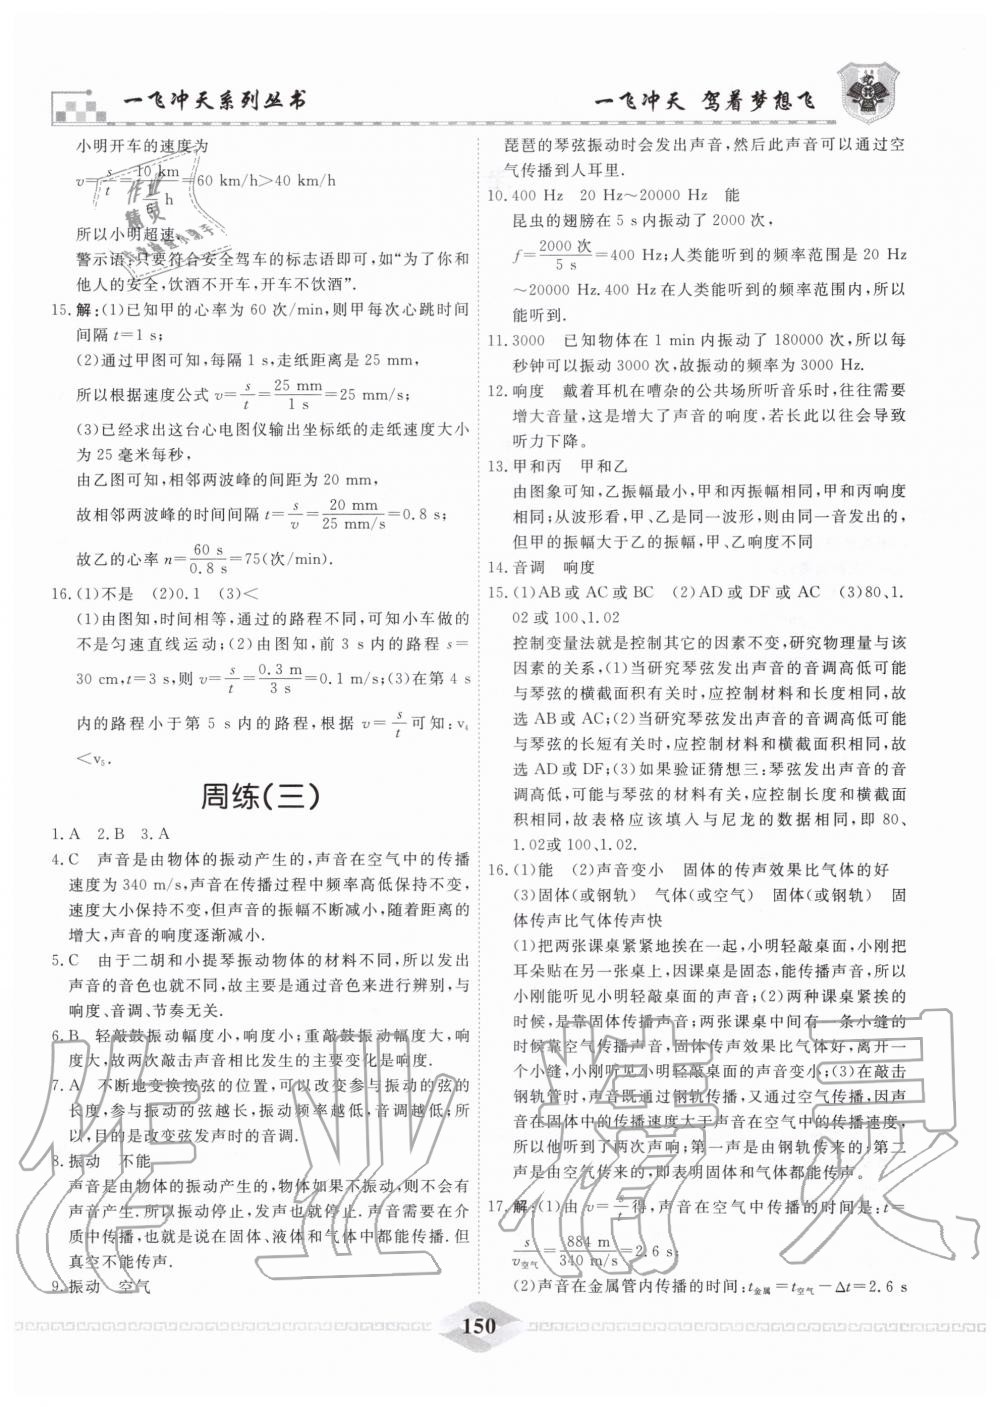 一飞冲天系列丛书
一飞冲天 驾着梦想飞
小明开车的速度为
v=s/t=10 km/(1/6 h)=60 km/h>40 km/h
所以小明超速.
警示语:只要符合安全驾车的标志语即可,如“为了你和
他人的安全,饮酒不开车,开车不饮酒”.
15.解:(1)已知甲的心率为 60 次/min,则甲每次心跳时间
间隔 t=1 s;
(2)通过甲图可知,每隔 1 s,走纸距离是 25 mm,
所以根据速度公式 v=s/t=25 mm/1 s=25 mm/s;
(3)已经求出这台心电图仪输出坐标纸的走纸速度大小
为 25 毫米每秒,
由乙图可知,相邻两波峰的间距为 20 mm,
故相邻两波峰的时间间隔 t=s/v=20 mm/25 mm/s=0.8 s;
故乙的心率 n=60 s/0.8 s=75(次/min).
16.(1)不是 (2)0.1 (3)<
(1)由图知,时间相等,通过的路程不同,可知小车做的
不是匀速直线运动;(2)由图知,前 3 s 内的路程 s=
30 cm,t=3 s,则 v=s/t=0.3 m/3 s=0.1 m/s;(3)在第 4 s
内的路程小于第 5 s 内的路程,根据 v=s/t可知:v₄
<v₅.
周练(三)
1.A 2.B 3.A
4.C 声音是由物体的振动产生的,声音在空气中的传播
速度为 340 m/s,声音在传播过程中频率高低保持不变,
速度大小保持不变,但声音的振幅不断减小,随着距离的
增大,声音的响度逐渐减小.
5.C 由于二胡和小提琴振动物体的材料不同,所以发出
声音的音色也就不同,该过程是通过音色来进行辨别,与
响度、音调、节奏无关.
6.B 轻敲鼓振动幅度小,响度小;重敲鼓振动幅度大,响
度大,故两次敲击声音相比发生的主要变化是响度.
7.A 不断地变换按弦的位置,可以改变参与振动的弦的
长度,参与振动的弦越长,振动频率越低,音调越低;所
以,目的是改变弦发声时的音调.
8.振动 不能
声音是由物体的振动产生的,物体如果不振动,则不会有
声音产生.所以振动停止,发声也就停止.声音需要在介
质中传播,也就是说在固体、液体和气体中都能传播.但
真空不能传声.
9.振动 空气
琵琶的琴弦振动时会发出声音,然后此声音可以通过空
气传播到人耳里.
10.400 Hz 20 Hz~20000 Hz 能
昆虫的翅膀在 5 s 内振动了 2000 次,
f=2000 次/5 s=400 Hz.人类能听到的频率范围是 20 Hz
~20000 Hz.400 Hz 在人类能听到的频率范围内,所以
能听到.
11.3000 已知物体在 1 min 内振动了 180000 次,所以每
秒钟可以振动 3000 次,故振动的频率为 3000 Hz.
12.响度 戴着耳机在嘈杂的公共场所听音乐时,往往需要
增大音量,这是增大了声音的响度,若长此以往会导致
听力下降。
13.甲和丙 甲和乙
由图象可知,乙振幅最小,甲和丙振幅相同,甲和丙响度
相同;从波形看,甲、乙是同一波形,则由同一音发出的,
但甲的振幅大于乙的振幅,甲、乙响度不同
14.音调 响度
15.(1)AB 或 AC 或 BC (2)AD 或 DF 或 AC (3)80、1.
02 或 100、1.02
控制变量法就是控制其它的因素不变,研究物理量与该
因素的关系,(1)当研究琴弦发出声音的音调高低可能
与琴弦的横截面积有关时,应控制材料和长度相同,故
选 AB 或 AC;(2)当研究琴弦发出声音的音调高低可能
与琴弦的长短有关时,应控制材料和横截面积相同,故
选 AD 或 DF;(3)如果验证猜想三:琴弦发出声音的音
调高低,可能与琴弦的材料有关,应控制长度和横截面
积相同,故表格应该填入与尼龙的数据相同,即 80、
1.02或100、1.02.
16.(1)能 (2)声音变小 固体的传声效果比气体的好
(3)固体(或钢轨) 气体(或空气) 固体(或钢轨) 固
体传声比气体传声快
(1)把两张课桌紧紧地挨在一起,小明轻敲桌面,小刚把
耳朵贴在另一张桌上,因课桌是固态,能传播声音,所以
小刚能听见小明轻敲桌面的声音;(2)两种课桌紧挨的
时候,是靠固体传播声音;两张课桌中间有一条小缝的
时候靠空气传播声音,固体传声效果比气体好,离开一
个小缝,小刚听见小明轻敲桌面的声音变小;(3)在敲击
钢轨管时,声音既通过钢轨传播,又通过空气传播,因声
音在固体中的传播速度大于声音在空气中的传播速度,
所以他听到了两次声响;第一声是由钢轨传来的;第二
声是由空气传来的,即表明固体和气体都能传声。
17.解:(1)由 v=s/t得,声音在空气中传播的时间是:t=
s/v空气=884 m/340 m/s=2.6 s;
(2)声音在金属管内传播的时间:t金属=t空气-Δt=2.6 s
150
作业精灵